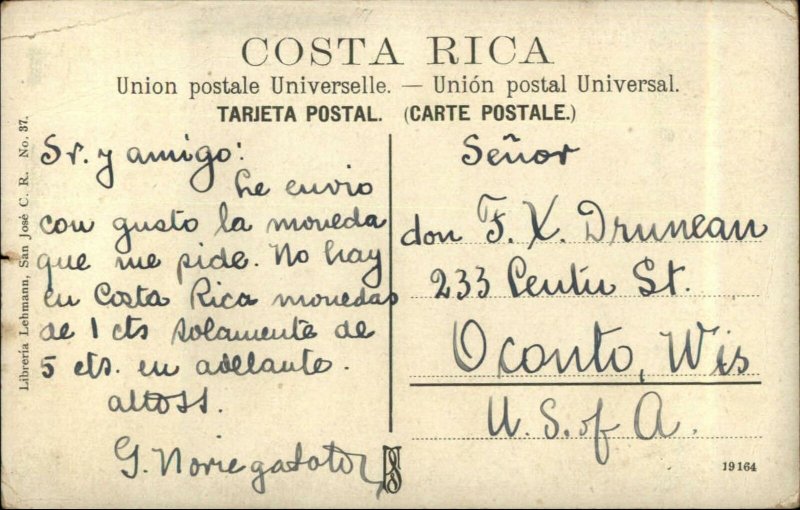 COSTA RICA
Union postale Universelle. — Unión postal Universal.
TARJETA POSTAL. (CARTE POSTALE.)
Librería Lehmann, San José C. R. No. 37.
Sr. y amigo:
Le envio
con gusto la moneda
que me pide. No hay
en Costa Rica monedas
de 1 cts solamente de
5 cts. en adelante.
G. Noriega Soto
Señor
don F. X. Drunean
233 St.
Oconto, Wis
U. S. of A.
19164